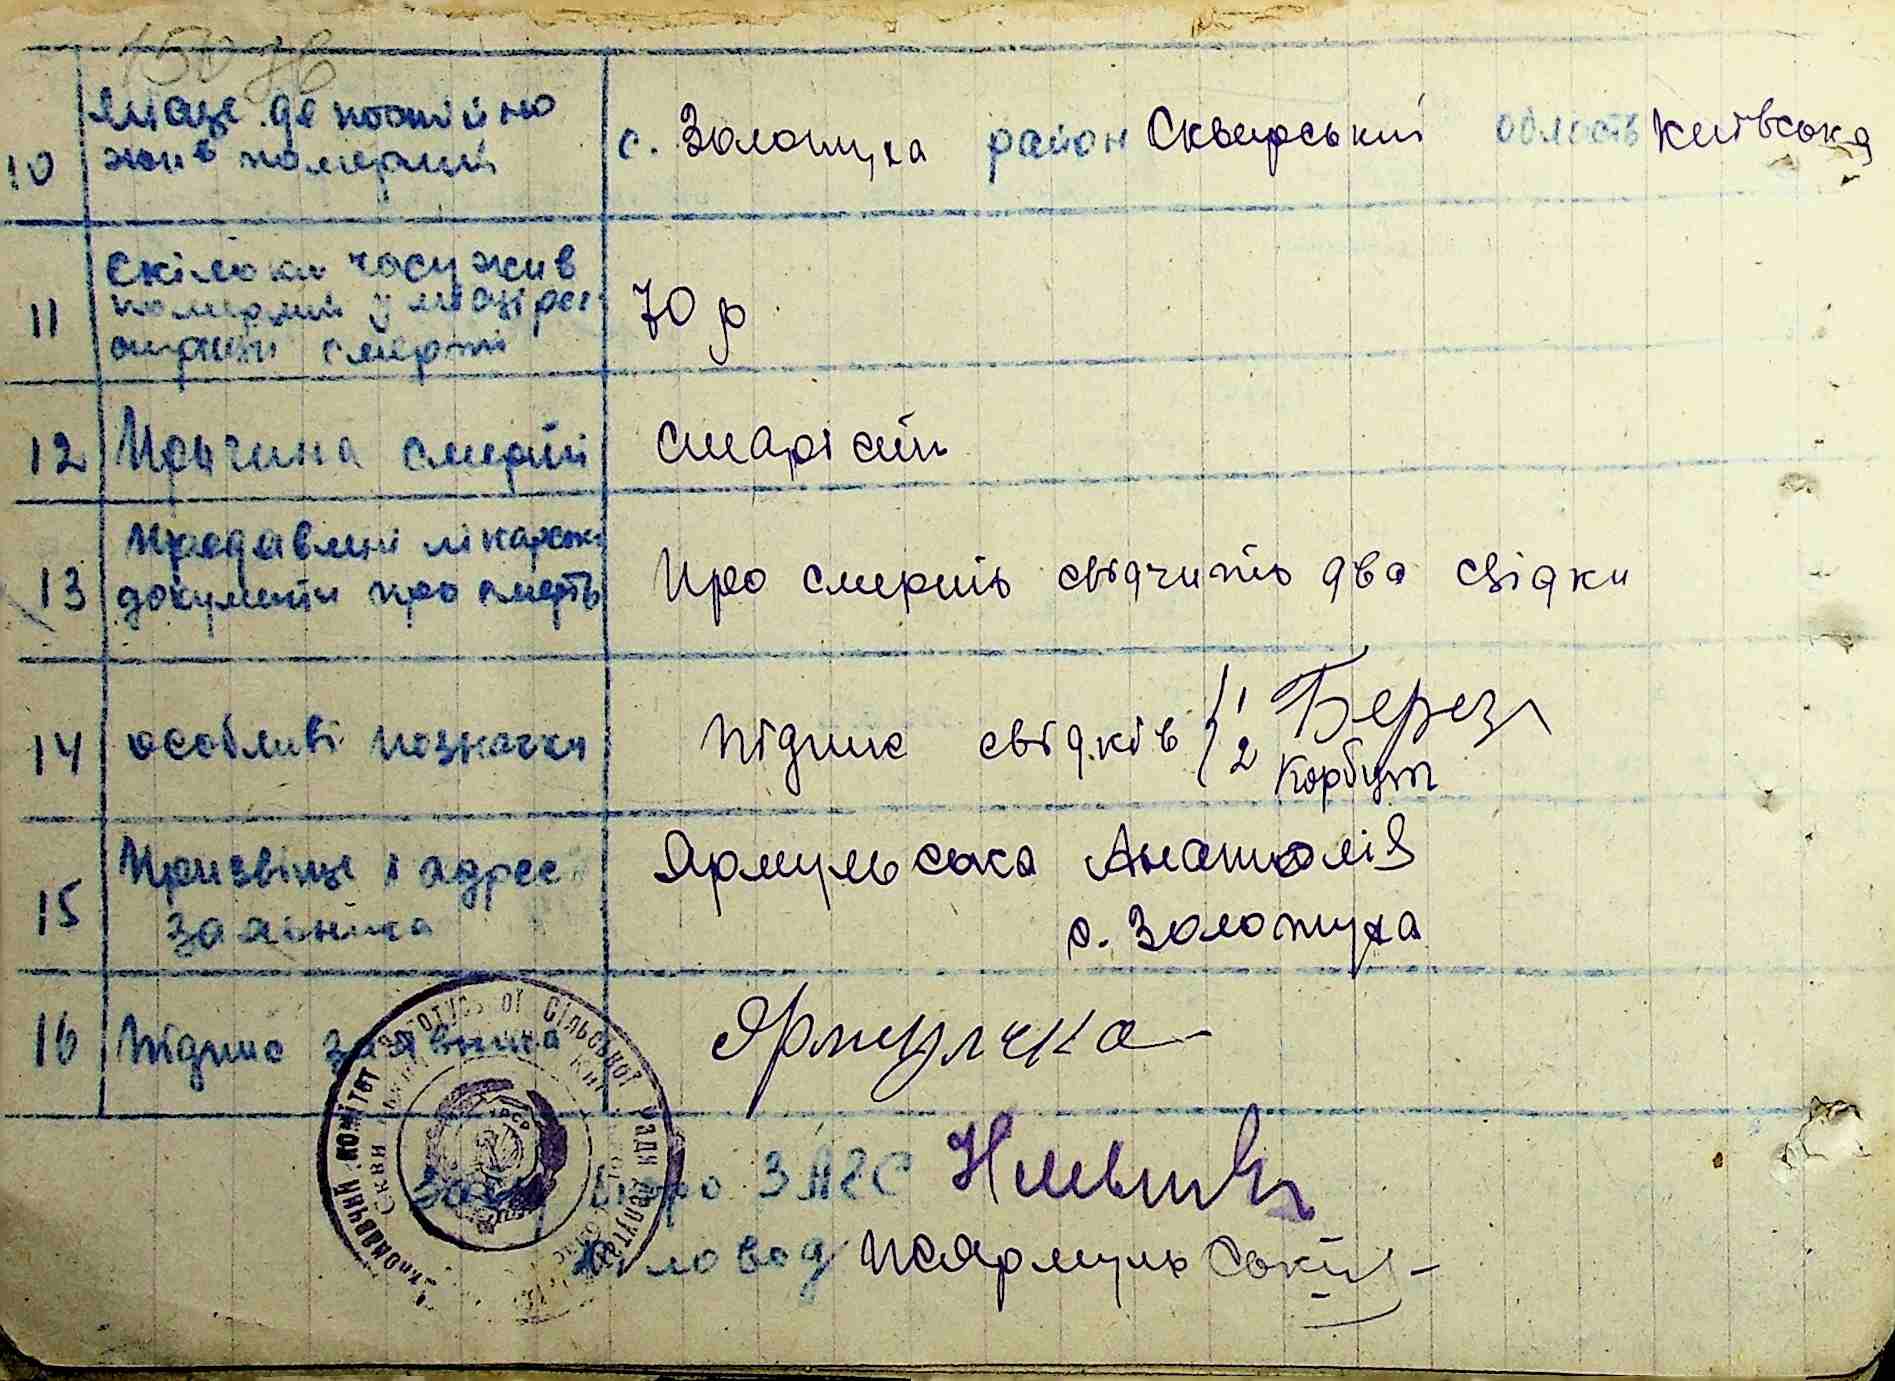 10 Місце де постійно жив померший
с. Золотуха район Сквирський область Київська
11 Скільки часу жив померший у місці реєстрації смерті
70 р
12 Причина смерті
старість
13 Предявлені лікарськ. документи про смерть
Про смерть свідчить два свідки
14 особливі позначки
підпис свідків 1 Берез
2 Корбут
15 Призвіще і адрес заявника
Ярмульська Анатолія
с. Золотуха
16 Підпис заявника
Ярмулчка
Зав. бюро ЗАГС
Діловод Ярмульський
Виконавчий комітет Золотуської Сільської Ради депутатів
УРСР